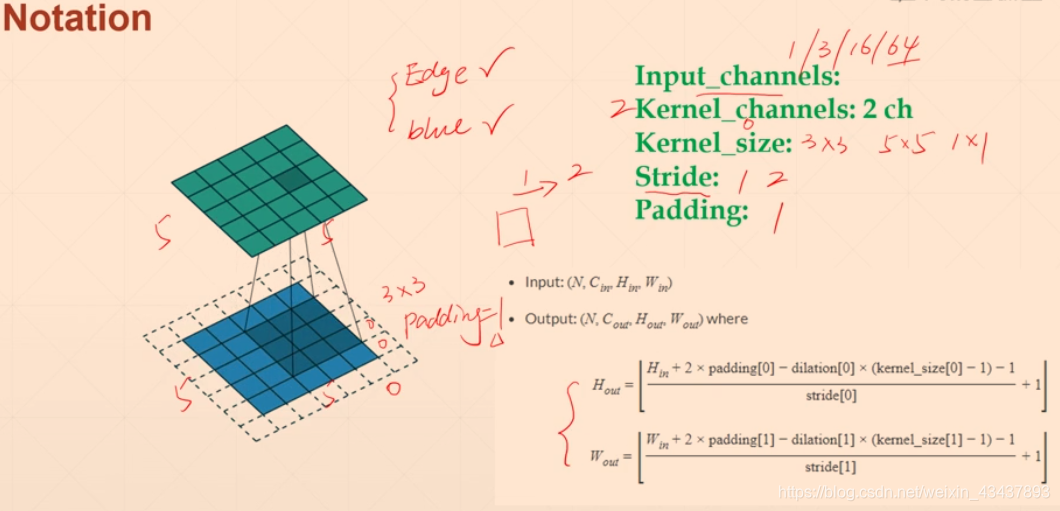 Notation
Edge ✓
blue ✓
1/3/16/64
Input_channels:
2 Kernel_channels: 2 ch
0
Kernel_size: 3×3 5×5 1×1
Stride: 1 2
Padding: 1
1 → 2
5
5
3×3
padding=1
0
0
0
5
5
• Input: (N, C_in, H_in, W_in)
• Output: (N, C_out, H_out, W_out) where
H_out = ⌊(H_in + 2 × padding[0] − dilation[0] × (kernel_size[0] − 1) − 1) / stride[0] + 1⌋
W_out = ⌊(W_in + 2 × padding[1] − dilation[1] × (kernel_size[1] − 1) − 1) / stride[1] + 1⌋
https://blog.csdn.net/weixin_43437893